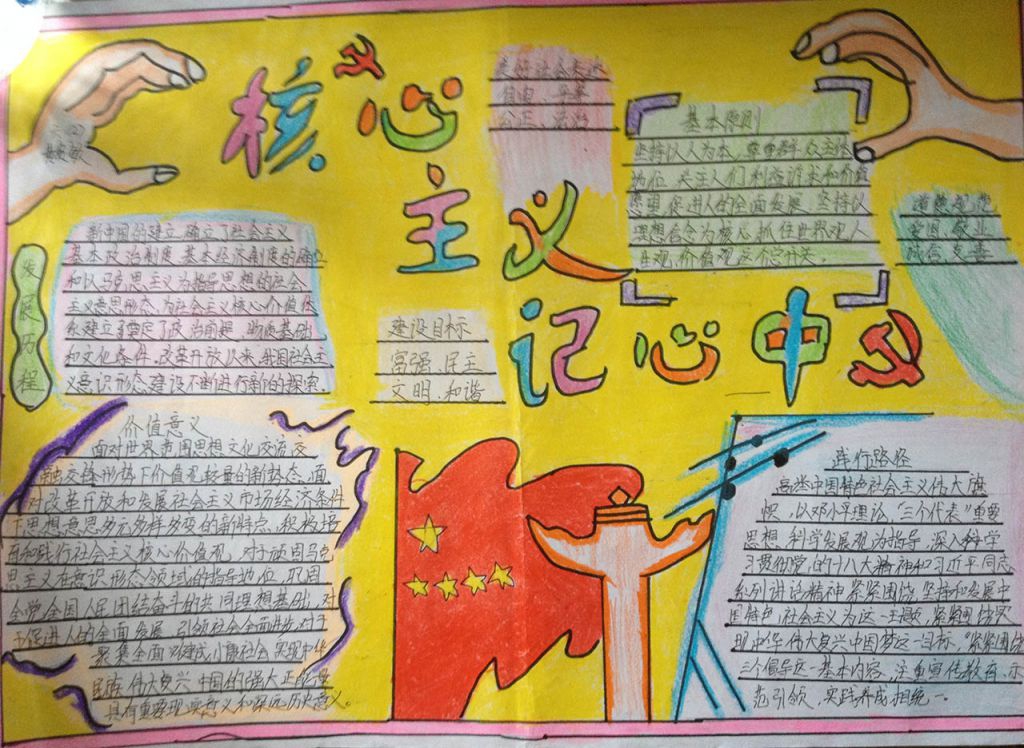 核心
主义
记心中
美好社会
自由、平等
公正、法治
基本原则
坚持以人为本,尊重群众主体
地位,关注人们利益诉求和价值
愿望,促进人的全面发展,坚持以
理想信念为核心,抓住世界观、人
生观、价值观这个总开关。
道德规范
爱国、敬业
诚信、友善
发展历程
新中国的建立,确立了社会主义
基本政治制度、基本经济制度的确立
和以马克思主义为指导思想的社会
主义意识形态,为社会主义核心价值体
系建立了政治前提、物质基础
和文化条件。改革开放以来,我国社会主
义意识形态建设不断进行新的探索
建设目标
富强、民主
文明、和谐
价值意义
面对世界范围思想文化交流交
融交锋形势下价值观较量的新势态,面
对改革开放和发展社会主义市场经济条件
下思想意思多元多样多变的新特点,积极培
育和践行社会主义核心价值观,对于巩固马克
思主义在意识形态领域的指导地位、巩固
全党全国人民团结奋斗的共同理想基础,对
于促进人的全面发展、引领社会全面进步,对于
聚集全面建成小康社会、实现中华
民族伟大复兴中国的强大正能量
具有重要现实意义和深远历史意义。
践行路径
高举中国特色社会主义伟大旗
帜,以邓小平理论、“三个代表”重要
思想、科学发展观为指导,深入科学
习贯彻党的十八大精神和习近平同志
系列讲话精神,紧紧围绕坚持和发展中
国特色社会主义为这一主题,紧紧围绕实
现中华伟大复兴中国梦这一目标,“紧紧围绕
三个倡导这一基本内容,注重宣传教育、示
范引领、实践养成相统一。